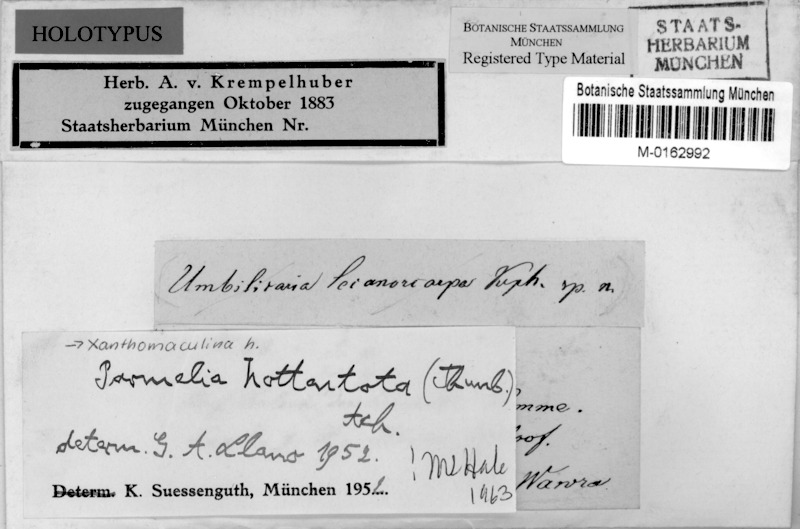 HOLOTYPUS
Herb. A. v. Krempelhuber
zugegangen Oktober 1883
Staatsherbarium München Nr.
BOTANISCHE STAATSSAMMLUNG
MÜNCHEN
Registered Type Material
STAATS-
HERBARIUM
MÜNCHEN
Botanische Staatssammlung München
M-0162992
Umbilicaria lecanorcarpa Krph. sp. n.
→ Xanthomaculina h.
Parmelia hottentota (Thunb.)
Ach.
determ. G. A. Llano 1952.
! M E Hale
1963
Determ. K. Suessenguth, München 1952.
Wawra